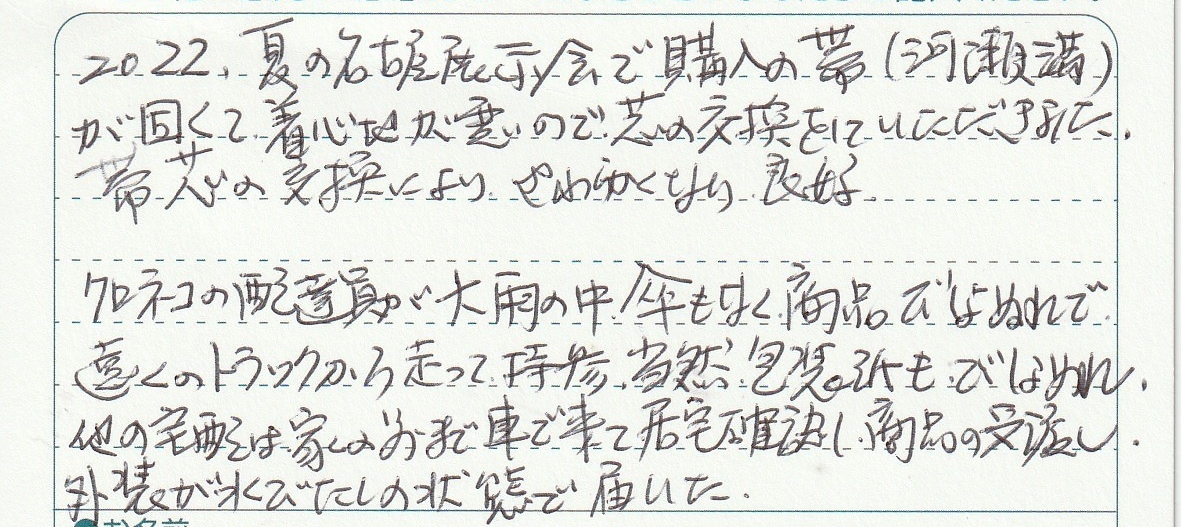 2022、夏の名古屋展示会で購入の帯(河瀬満)
が固くて着心地が悪いので芯の交換をしていただきました.
帯芯の交換により やわらかくなり 良好.
クロネコの配達員が大雨の中 傘もなく 商品びしょぬれで
遠くのトラックから走って持参 当然 包装紙もびしょぬれ.
他の宅配は家の前まで車で来て居宅確認し 商品の受渡し.
外装が水びたしの状態で届いた.
●お名前